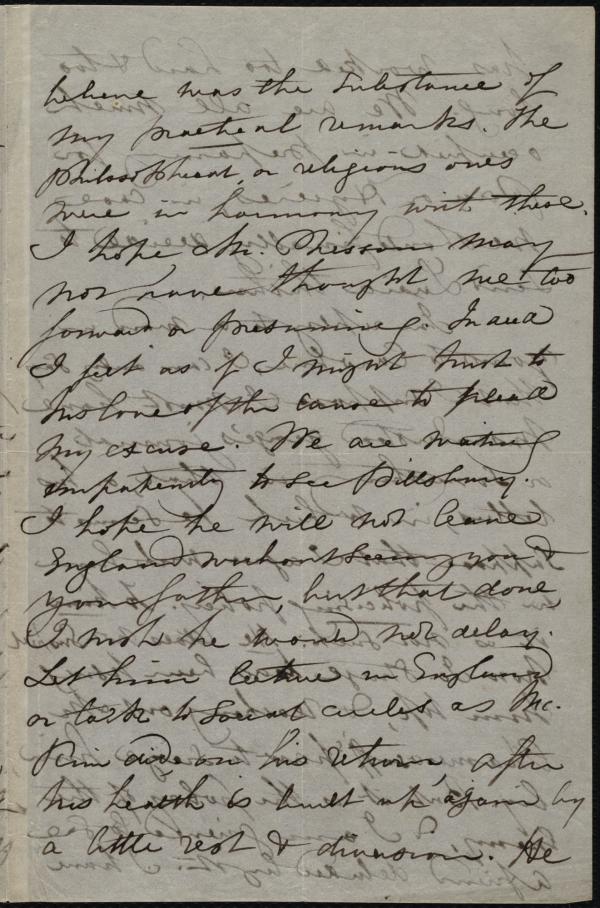 believe was the substance of
my practical remarks. The
philosophical, or religious ones
were in harmony with these.
I hope Mr. may
not have thought me too
forward or presuming. Indeed
I felt as if I might trust to
his love of the cause to plead
my excuse. We are waiting
impatiently to see Pillsbury.
I hope he will not leave
England without seeing you &
your father, but that done
I wish he would not delay.
Let him lecture in England
or talk to social circles as Mc.
Kim did, on his return, after
his health is built up again by
a little rest & diversion. He